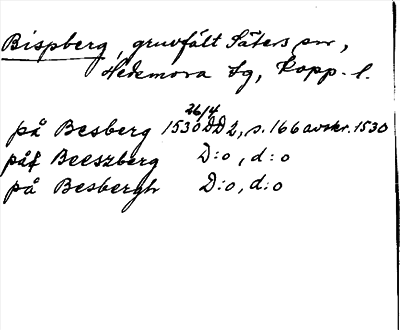 Bispberg, gruvfält Säters sn,
Hedemora tg, Kopp. l.
26/4
på Besberg 1530 DD 2, s. 166 avskr. 1530
påf Beeszberg D:o, d:o
på Besbergh D:o, d:o